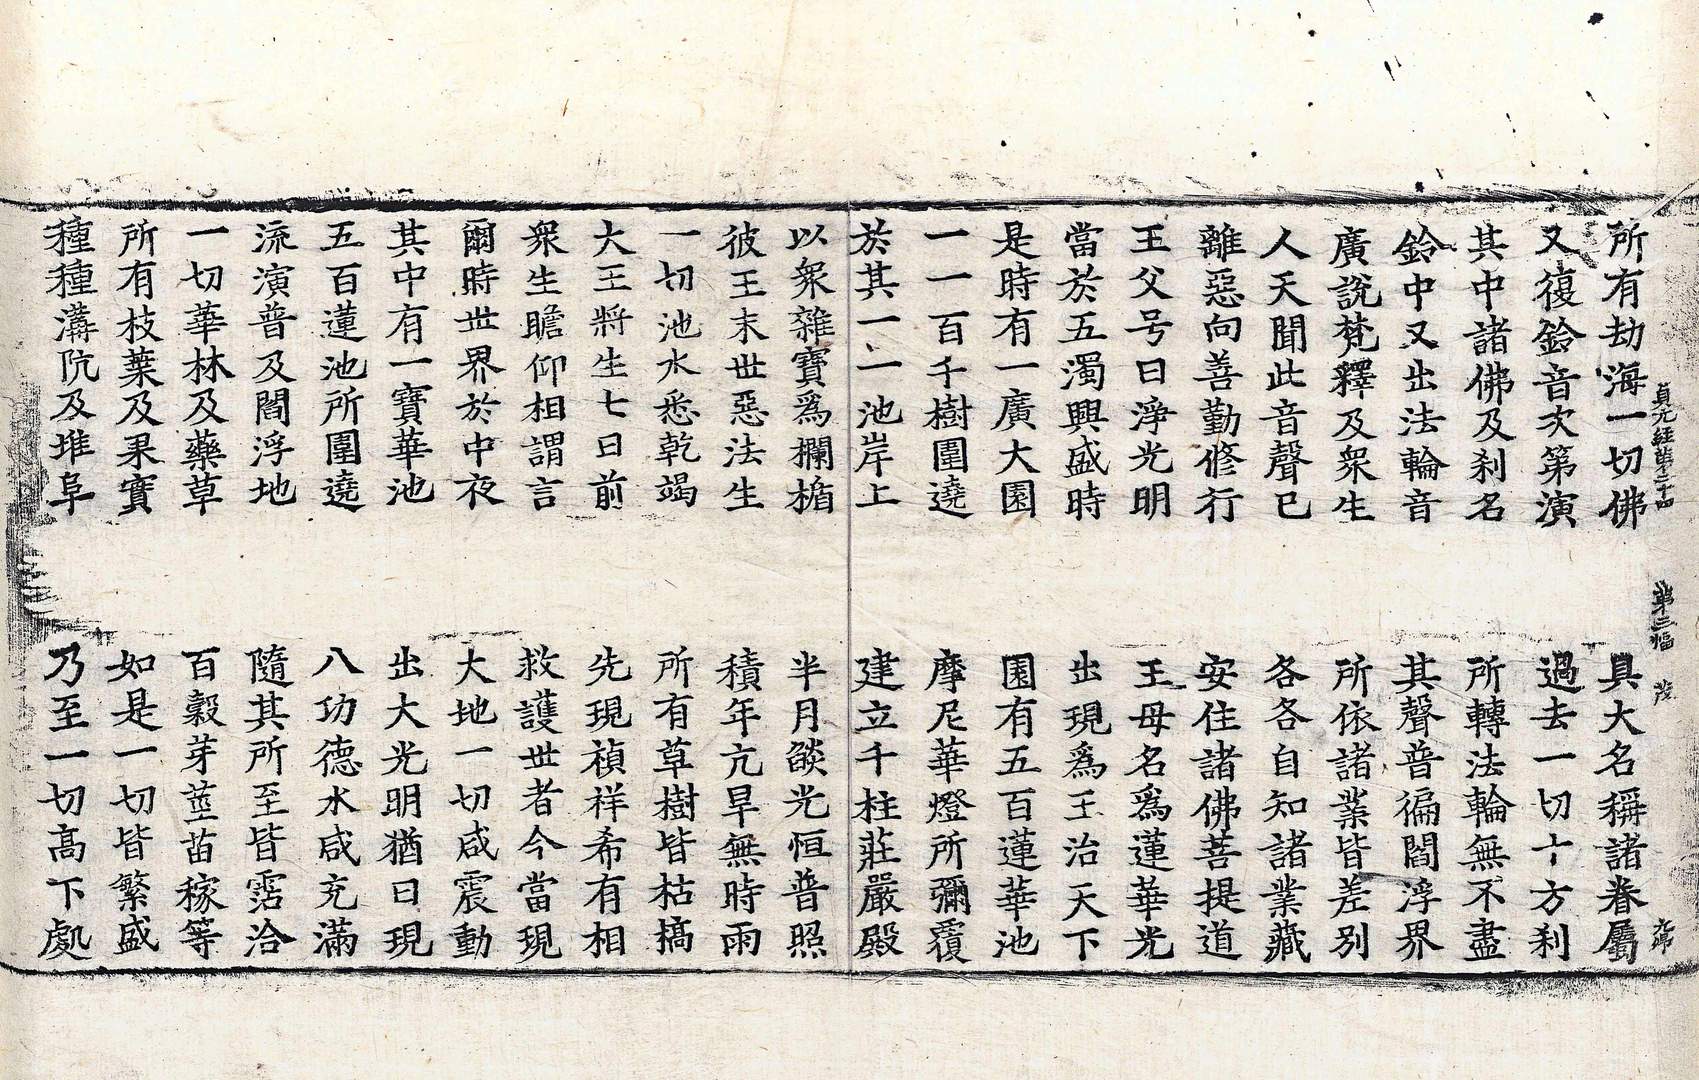 貞元経第三十四 第三幅
所有劫海一切佛 具大名稱諸眷屬
又復鈴音次第演 過去一切十方刹
其中諸佛及刹名 所轉法輪無不盡
鈴中又出法輪音 其聲普徧閻浮界
廣說梵釋及衆生 所依諸業皆差别
人天聞此音聲已 各各自知諸業藏
離惡向善勤修行 安住諸佛菩提道
王父号曰淨光明 王母名爲蓮華光
當於五濁興盛時 出現爲王治天下
是時有一廣大園 園有五百蓮華池
一一百千樹圍遶 摩尼華燈所彌覆
於其一一池岸上 建立千柱莊嚴殿
以衆雜寶爲欄楯 半月燄光恒普照
彼王末世惡法生 積年亢旱無時雨
一切池水悉乾竭 所有草樹皆枯槁
大王將生七日前 先現禎祥希有相
衆生瞻仰相謂言 救護世者今當現
爾時世界於中夜 大地一切咸震動
其中有一寶華池 出大光明猶日現
五百蓮池所圍遶 八功德水咸充滿
流演普及閻浮地 隨其所至皆霑洽
一切華林及藥草 百穀芽莖苗稼等
所有枝葉及果實 如是一切皆繁盛
種種溝阬及堆阜 乃至一切高下處